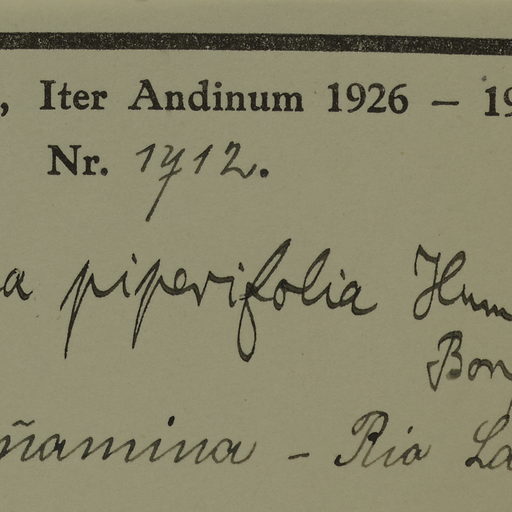 , Iter Andinum 1926 – 19
Nr. 1712.
a piperifolia Hum
Bon
ñamina – Rio La